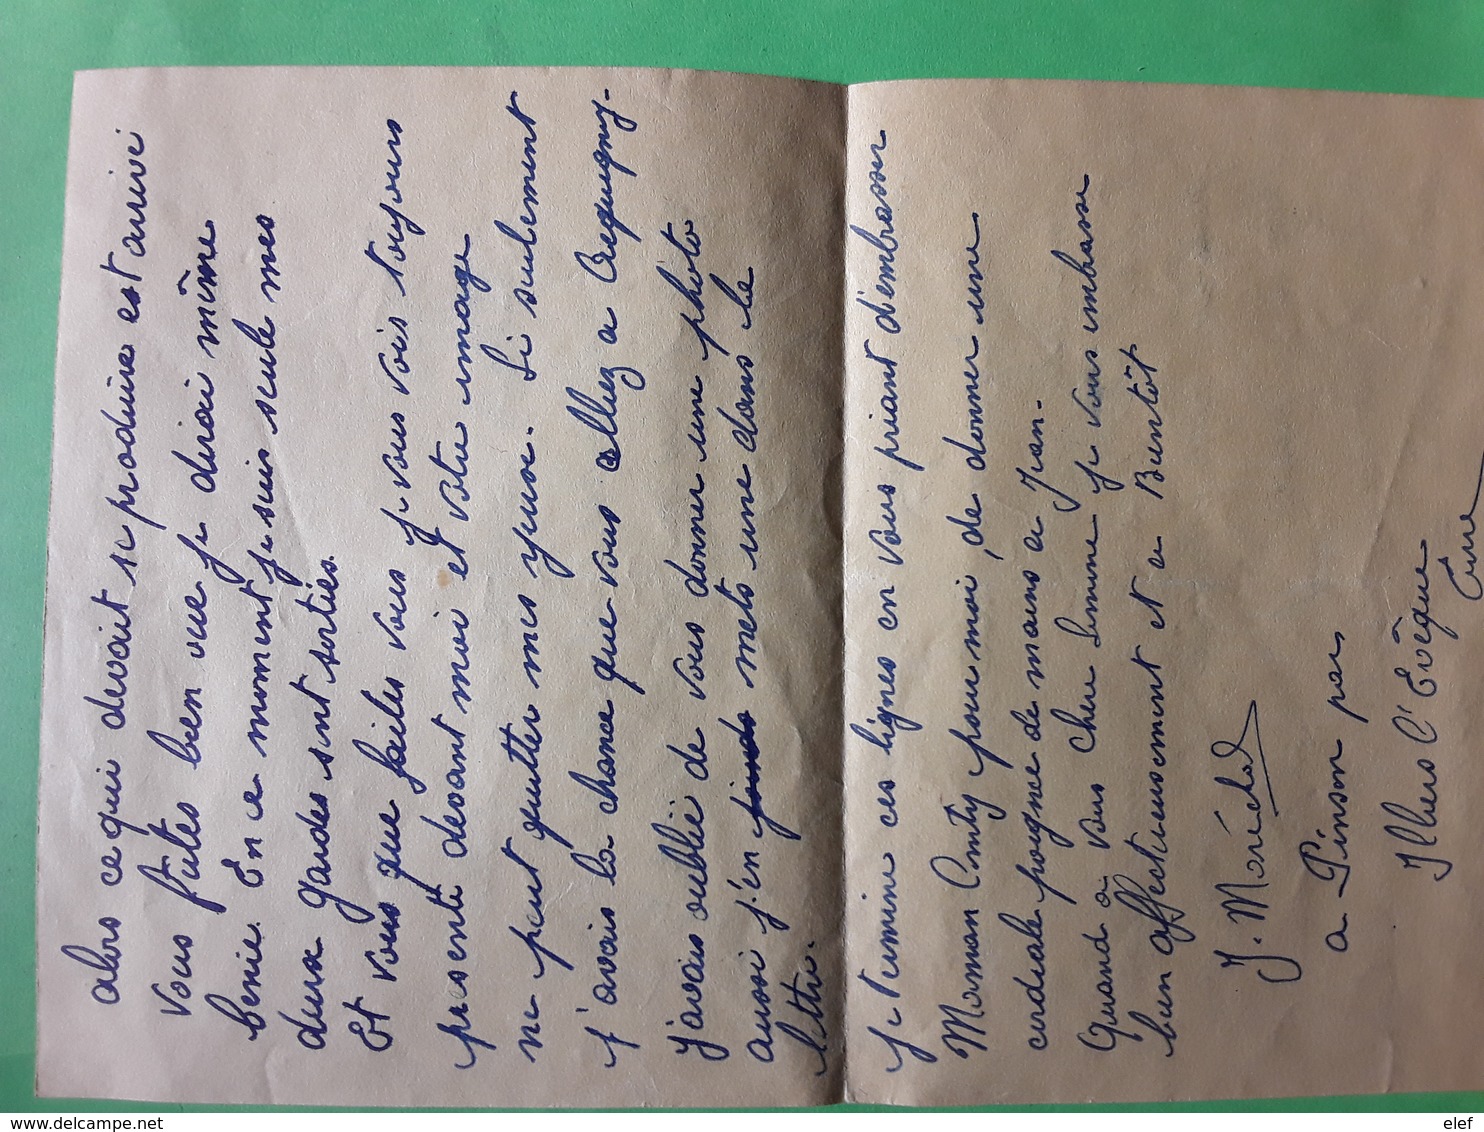 alors ce qui devait se produire est arrivé
Vous fûtes bien vue je dirai même
benie. En ce moment je suis seule mes
deux gardes sont sorties.
Et vous que faites vous je vous vois toujours
présente devant moi et votre image
ne peut quitter mes yeux. Si seulement
j'avais la chance que vous alliez a Acquigny.
J'avais oublié de vous donner une photo
aussi j'en joinds mets une dans la
lettre.
je termine ces lignes en vous priant d'embrasser
Maman pour moi, de donner une
cordiale poignée de mains a Jean.
Quand a vous chère Simone je vous embrasse
bien affectueusement et a Bientôt
J. Maréchal
a Pinson par
Illiers l'Evêque
Eure
delcampe.net
elef